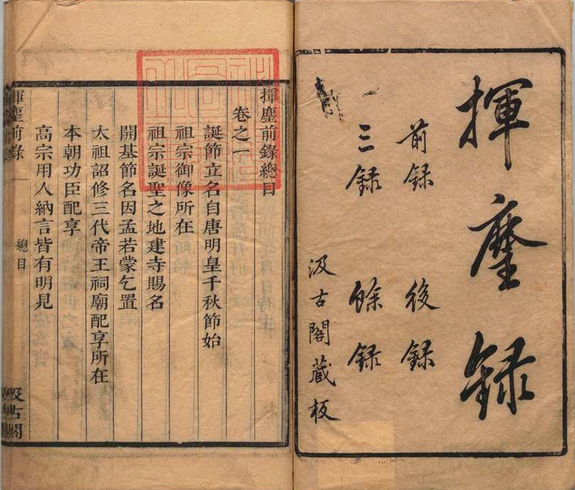 揮麈録
前録 後録
三録 餘録
汲古閣藏板
揮麈前錄總目
卷之一
誕節立名自唐明皇千秋節始
祖宗御像所在
祖宗誕聖之地建寺賜名
開基節名因孟若蒙乞置
太祖詔修三代帝王祠廟配享所在
本朝功臣配享
高宗用人納言皆有明見
揮麈前錄 總目 汲古閣